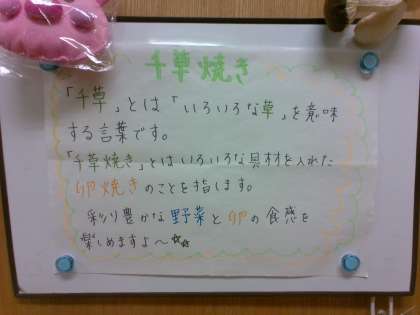 千草焼き
「千草」とは「いろいろな草」を意味
する言葉です。
「千草焼き」とはいろいろな具材を入れた
卵焼きのことを指します。
彩り豊かな野菜と卵の食感を
楽しめますよ〜